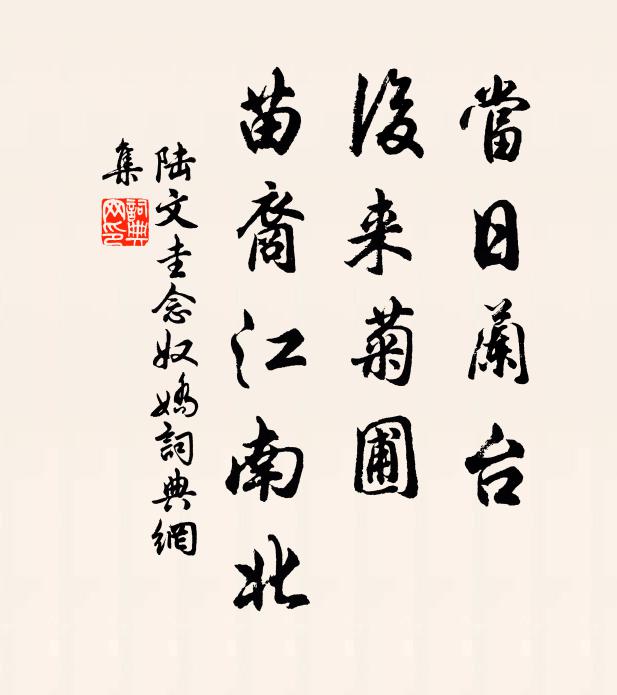 當日蘭台
後来菊圃
苗裔江南北
陆文圭念奴嬌詞典網
集
詞典网印